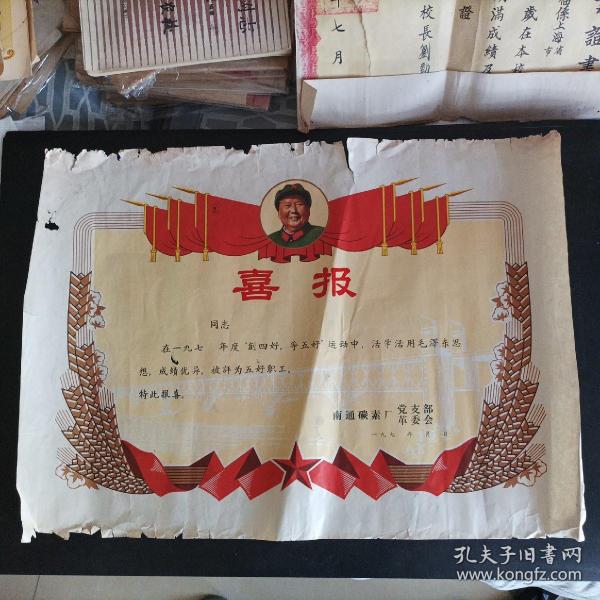 年七月
校長劉
證
滿成績及
歲在本校
係上海市
證書
喜报
同志
在一九七 年度"创四好，争五好"运动中，活学活用毛泽东思
想，成绩优异，被评为五好职工。
特此报喜。
南通碳素厂 党支部
革委会
一九七 年 月 日
孔夫子旧书网
www.kongfz.com